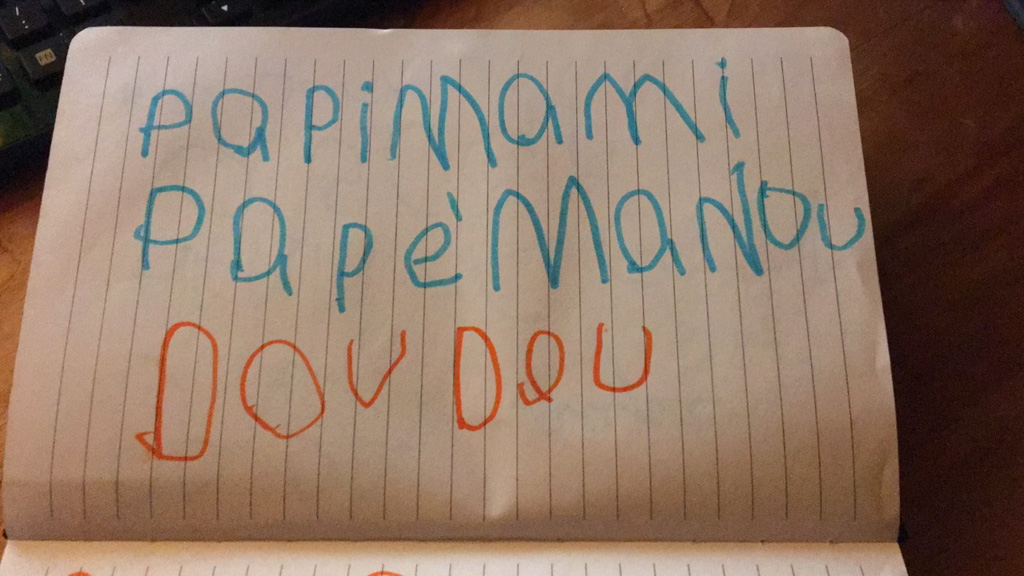 PaPiMaMi
PaPéMaNou
DOUDOU